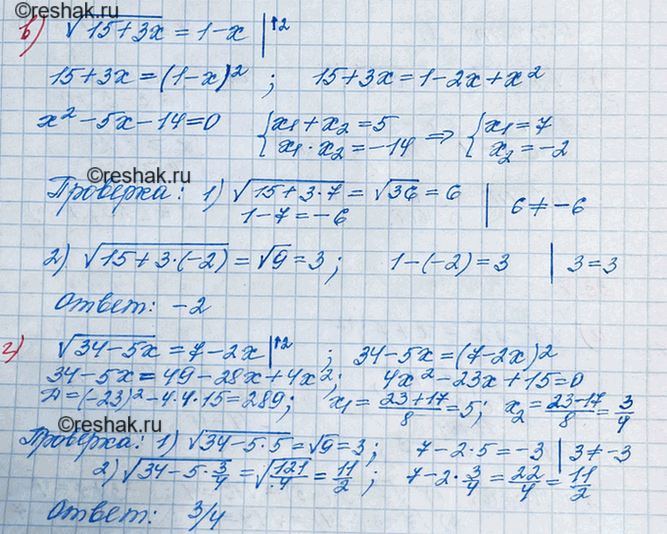 в) √(15+3x) = 1-x |↑2
15+3x = (1-x)² ; 15+3x = 1-2x+x²
x²-5x-14=0 {x1+x2=5 x1·x2=-14 ⇒ {x1=7 x2=-2
©reshak.ru
©reshak.ru
Проверка: 1) √(15+3·7) = √36 = 6 1-7=-6 | 6≠-6
2) √(15+3·(-2)) = √9 = 3; 1-(-2)=3 | 3=3
Ответ: -2
©reshak.ru
г) √(34-5x) = 7-2x |↑2 ; 34-5x=(7-2x)²
34-5x=49-28x+4x²; 4x²-23x+15=0
Д=(-23)²-4·4·15=289; x1=(23+17)/8=5; x2=(23-17)/8=3/4
Проверка: 1) √(34-5·5)=√9=3; 7-2·5=-3 | 3≠-3
2) √(34-5·3/4)=√(121/4)=11/2; 7-2·3/4=22/4=11/2
Ответ: 3/4
©reshak.ru